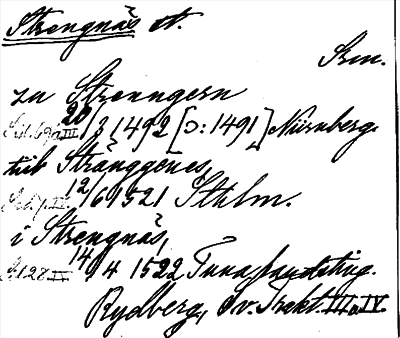 Strengnäs st.
Srm.
zu Strenngern
20/3 1492 [ɔ: 1491] Nürnberg.
till Stränggenes,
12/6 1521 Sthlm.
i Strengnäs,
14/4 1522 Tuna landsting.
Rydberg, Sv. Trakt. III o. IV.